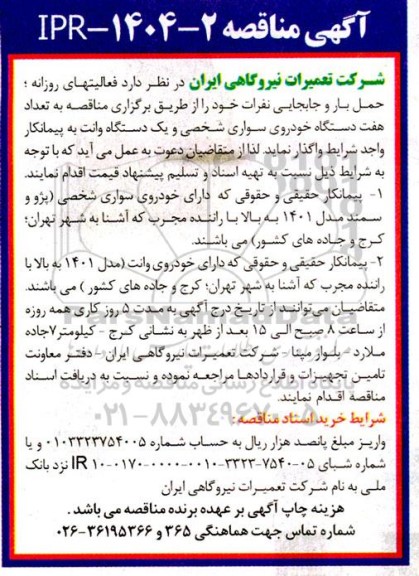 آگهی مناقصه ۲-۱۴۰۴-IPR
شرکت تعمیرات نیروگاهی ایران در نظر دارد فعالیتهای روزانه ؛
حمل بار و جابجایی نفرات خود را از طریق برگزاری مناقصه به تعداد
هفت دستگاه خودروی سواری شخصی و یک دستگاه وانت به پیمانکار
واجد شرایط واگذار نماید. لذا از متقاضیان دعوت به عمل می آید که با توجه
به شرایط ذیل نسبت به تهیه اسناد و تسلیم پیشنهاد قیمت اقدام نمایند.
۱- پیمانکار حقیقی و حقوقی که دارای خودروی سواری شخصی (پژو و
سمند مدل ۱۴۰۱ به بالا با راننده مجرب که آشنا به شهر تهران؛
کرج و جاده های کشور) می باشند.
۲- پیمانکار حقیقی و حقوقی که دارای خودروی وانت (مدل ۱۴۰۱ به بالا با
راننده مجرب که آشنا به شهر تهران؛ کرج و جاده های کشور ) می باشند.
متقاضیان می‌توانند از تاریخ درج آگهی به مدت ۵ روز کاری همه روزه
از ساعت ۸ صبح الی ۱۵ بعد از ظهر به نشانی کرج - کیلومتر۷جاده
ملارد - بلوار مپنا - شرکت تعمیرات نیروگاهی ایران - دفتر معاونت
تامین تجهیزات و قراردادها مراجعه نموده و نسبت به دریافت اسناد
مناقصه اقدام نمایند.
شرایط خرید اسناد مناقصه :
واریز مبلغ پانصد هزار ریال به حساب شماره ۰۱۰۳۳۲۳۷۵۴۰۰۵ و یا
شماره شبای ۰۵-۷۵۴۰-۳۳۲۳-۰۰۱۰-۰۰۰۰-۰۱۷۰-۱۰ IR نزد بانک
ملی به نام شرکت تعمیرات نیروگاهی ایران
هزینه چاپ آگهی بر عهده برنده مناقصه می باشد .
شماره تماس جهت هماهنگی ۳۶۵ و ۳۶۱۹۵۳۶۶-۰۲۶